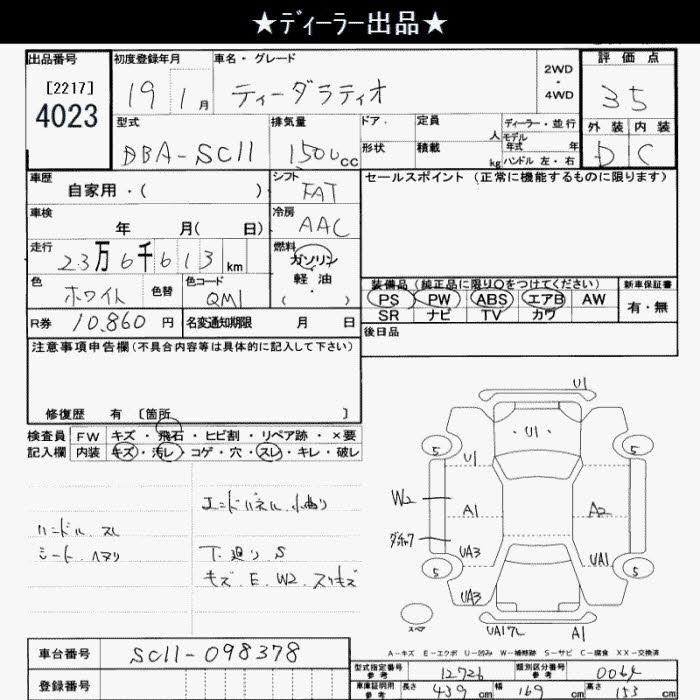 ★ディーラー出品★
出品番号
[2217]
4023
初度登録年月
19 1月
車名・グレード
ティーダラティオ
2WD
・
4WD
評価点
35
外装 内装
D C
型式
DBA-SC11
排気量
1500cc
ドア.
形状
定員 人
積載 kg
ディーラー・並行
モデル
年式 年
ハンドル 左・右
車歴
自家用・( )
シフト
FAT
セールスポイント (正常に機能するものに限ります)
車検
年 月( 日)
冷房
AAC
走行
23万6千613km
燃料
ガソリン
軽油
( ・ )
色
ホワイト
色替
色コード
QM1
装備品 (純正品に限り○をつけてください)
PS PW ABS エアB AW
SR ナビ TV カワ
新車保証書
有・無
R券 10,860円
名変通知期限 月 日
後日品
注意事項申告欄(不具合内容等は具体的に記入して下さい)
修復歴 有 〔箇所 〕
検査員
記入欄
FW キズ・飛石・ヒビ割・リペア跡・×要
内装 キズ・汚レ・コゲ・穴・スレ・キレ・破レ
エンドパネル小曲り
ハンドル スレ
シート ヘタリ
下廻り S
キズ E W2 スリキズ
U1
・U1・
5 5
U1
W2
A1 A2
UA3 UA1
5 5
UA3
スペア
UA17L A1
A-キズ E-エクボ U-凹み W-補修跡 S-サビ C-腐食 XX-交換済
車台番号
SC11-098378
登録番号
型式指定番号
参考
12726
類別区分番号
参考
0064
車庫証明用
参考
長さ 439cm 幅 169cm 高さ 153cm